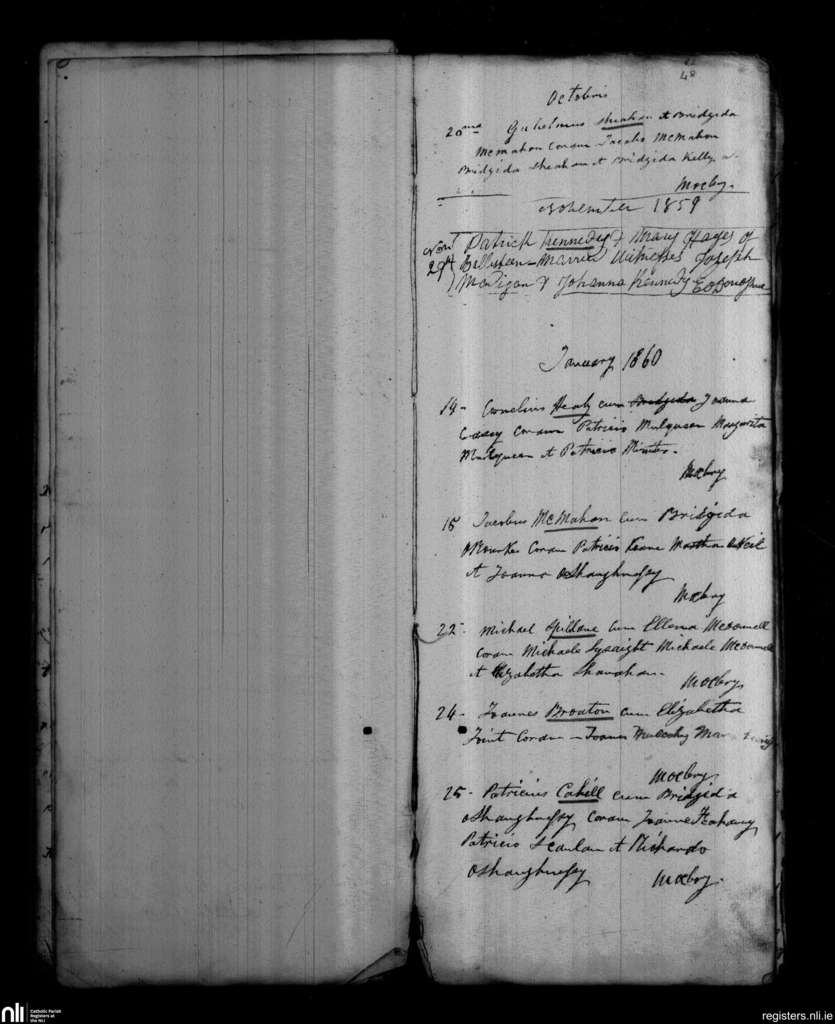 48
Octobris
20ma Gulielmus Sheahan et Bridgida
McMahon Coram Jacobo McMahon
Bridgida Sheahan et Bridgida Kelly
November 1859
Novr Patrick Kennedy & Mary Hayes of
29th married Witnesses Joseph
Madigan & Johanna Kennedy E O Donoghue
January 1860
14 - Cornelius Healy cum Bridgida Joanna
Casey Coram Patricio Mulqueen Margarita
Mulqueen et Patricio
15 Jacobus McMahon cum Bridgida
ORourke Coram Patricio Keane Martha ONeil
et Joanna OShaughnessy
22 - Michael Spillane cum Ellena McDonnell
Coram Michaele Lysaight Michaele McDonnell
et Elizabetha Shanahan -
24 - Joannes cum Elizabetha
Coram - Joanne Mulcahy
25 - Patricius Cahill cum Bridgida
OShaughnessy Coram Joanne
Patricio Scanlan et Richardo
OShaughnessy
nli
Catholic Parish
Registers at
the NLI
registers.nli.ie